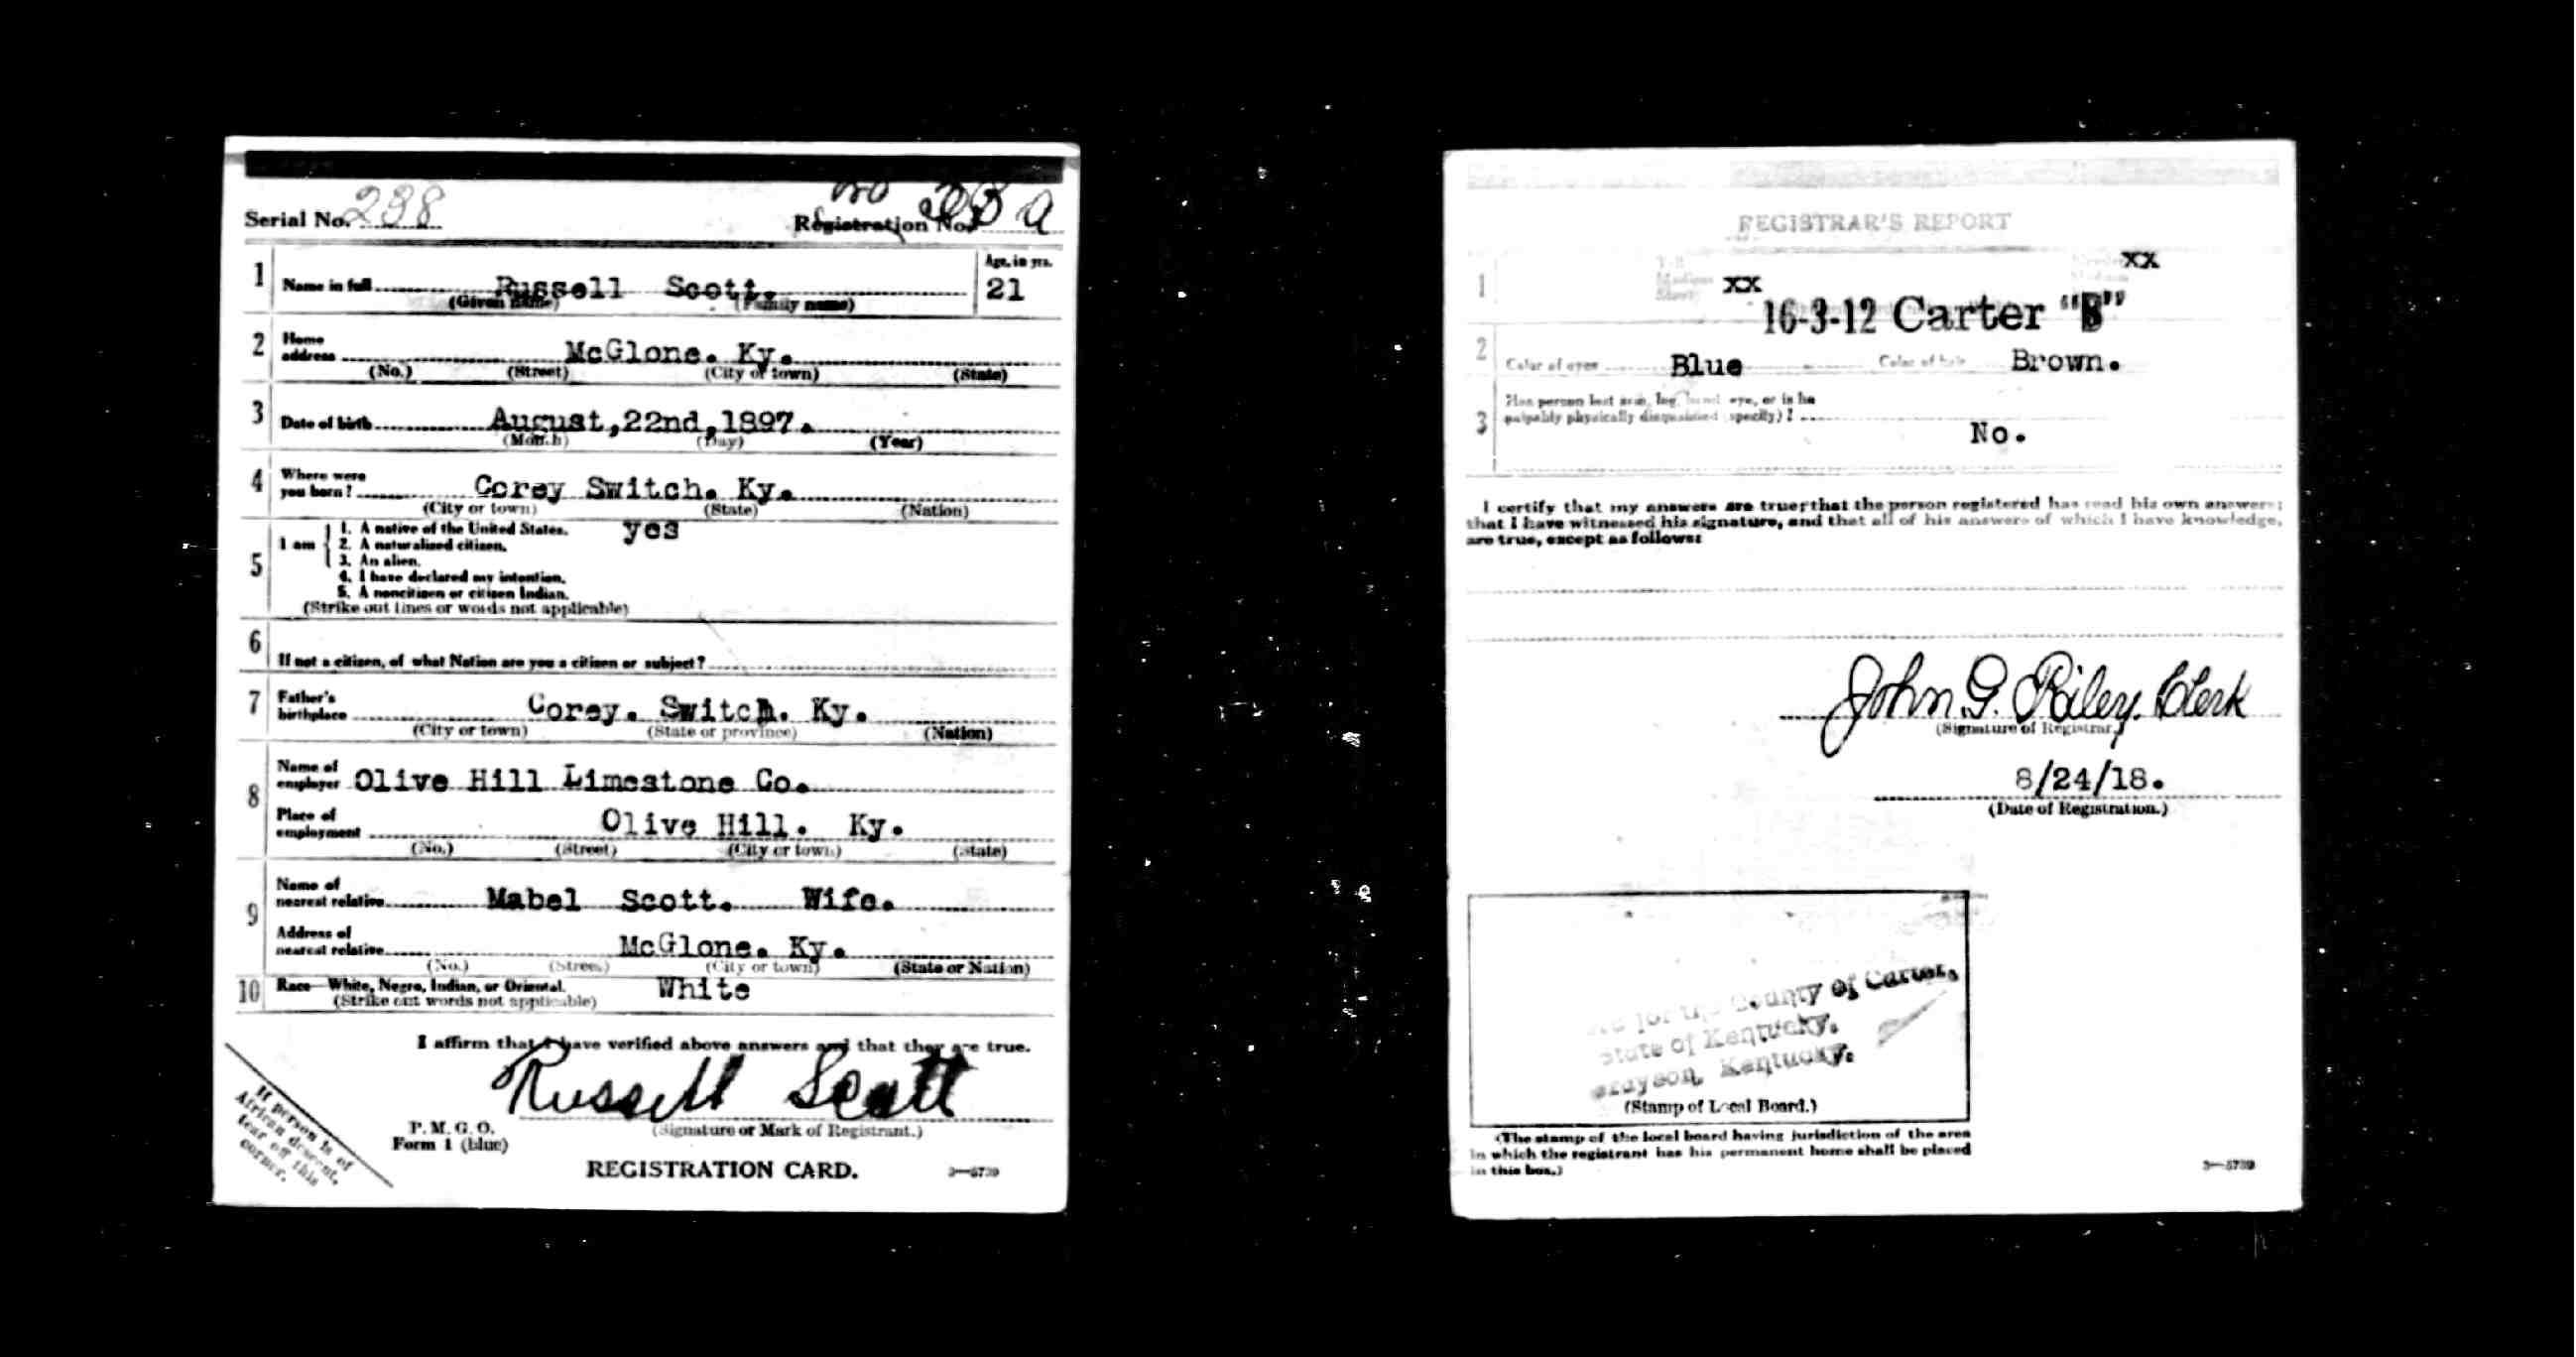 Serial No. 238 Registration No.
1 Name in full Russell Scott. Age, in yrs. 21
(Given name) (Family name)
2 Home address McGlone. Ky.
(No.) (Street) (City or town) (State)
3 Date of birth August, 22nd, 1897.
(Month) (Day) (Year)
4 Where were you born? Corey Switch. Ky.
(City or town) (State) (Nation)
5 I am 1. A native of the United States. yes
2. A naturalized citizen.
3. An alien.
4. I have declared my intention.
5. A noncitizen or citizen Indian.
(Strike out lines or words not applicable)
6 If not a citizen, of what Nation are you a citizen or subject?
7 Father's birthplace Corey. Switch. Ky.
(City or town) (State or province) (Nation)
8 Name of employer Olive Hill Limestone Co.
Place of employment Olive Hill. Ky.
(No.) (Street) (City or town) (State)
9 Name of nearest relative Mabel Scott. Wife.
Address of nearest relative McGlone. Ky.
(No.) (Street) (City or town) (State or Nation)
10 Race—White, Negro, Indian, or Oriental. White
(Strike out words not applicable)
I affirm that I have verified above answers and that they are true.
Russell Scott
(Signature or Mark of Registrant.)
P. M. G. O.
Form 1 (blue)
REGISTRATION CARD. 3—5739
If person is of
African descent,
tear off this
corner.
REGISTRAR'S REPORT
1 xx xx
16-3-12 Carter "B"
2 Color of eyes Blue Color of hair Brown.
3 Has person lost arm, leg, hand, eye, or is he
palpably physically disqualified (specify)?
No.
I certify that my answers are true; that the person registered has read his own answers;
that I have witnessed his signature, and that all of his answers of which I have knowledge,
are true, except as follows:
John G. Riley. Clerk
(Signature of Registrar.)
8/24/18.
(Date of Registration.)
for the County of Carter,
State of Kentucky.
Grayson, Kentucky.
(Stamp of Local Board.)
(The stamp of the local board having jurisdiction of the area
in which the registrant has his permanent home shall be placed
in this box.)
3—5739